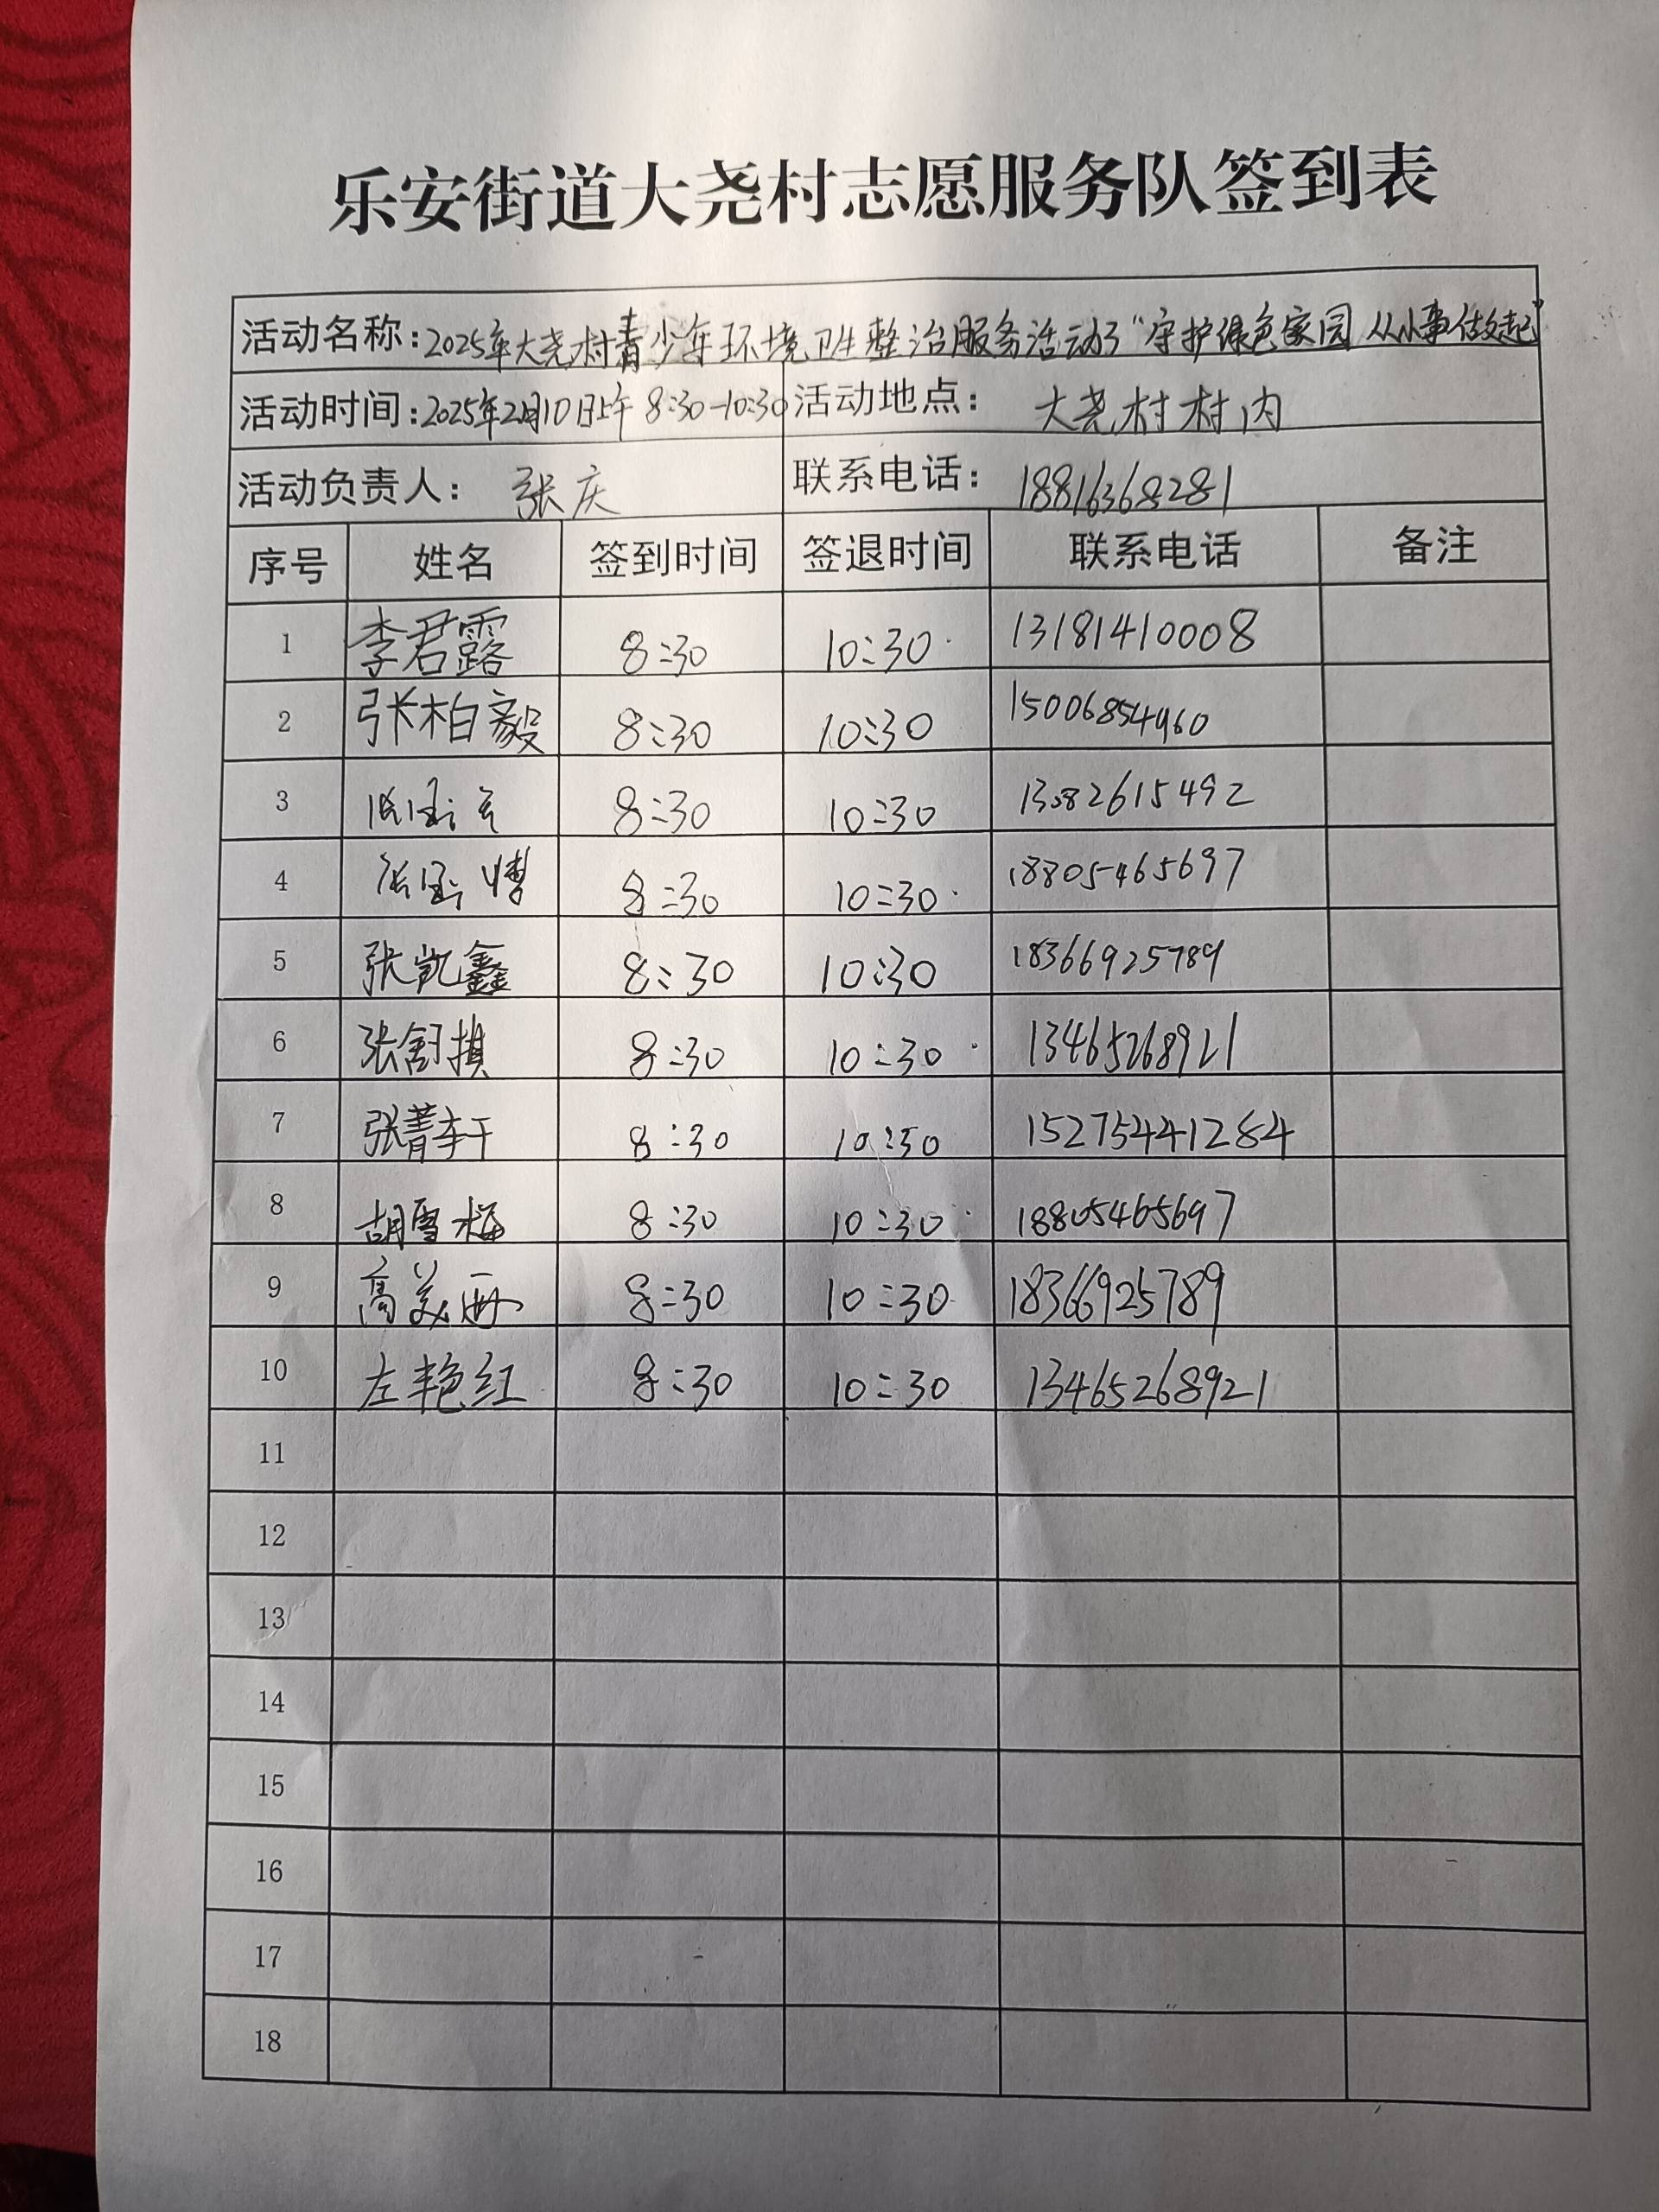 乐安街道大尧村志愿服务队签到表
活动名称:2025年大尧村青少年环境卫生整治服务活动"守护绿色家园 从小事做起"
活动时间:2025年2月10日上午 8:30-10:30 活动地点: 大尧村村内
活动负责人: 张庆 联系电话: 18816368281
序号 姓名 签到时间 签退时间 联系电话 备注
1 李君露 8:30 10:30 13181410008
2 张柏毅 8:30 10:30 15006854960
3 8:30 10:30 13082615492
4 8:30 10:30 18805465697
5 张凯鑫 8:30 10:30 18366925789
6 张舒掑 8:30 10:30 13465268921
7 张菁轩 8:30 10:30 15275441284
8 胡雪梅 8:30 10:30 18805465697
9 高美丽 8:30 10:30 18366925789
10 左艳红 8:30 10:30 13465268921
11
12
13
14
15
16
17
18